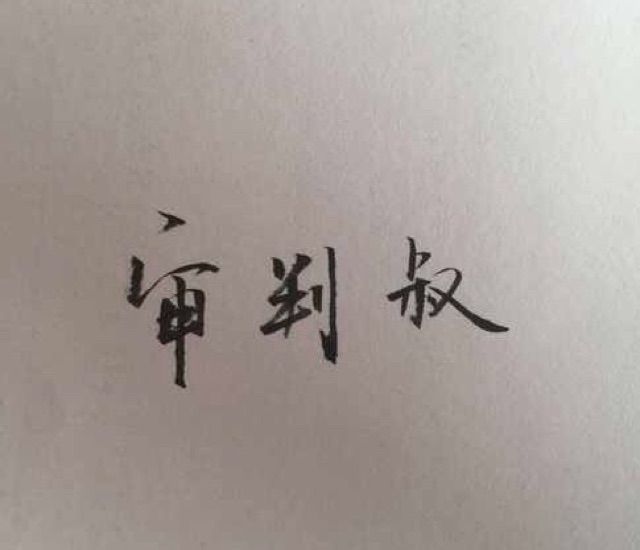 审判叔